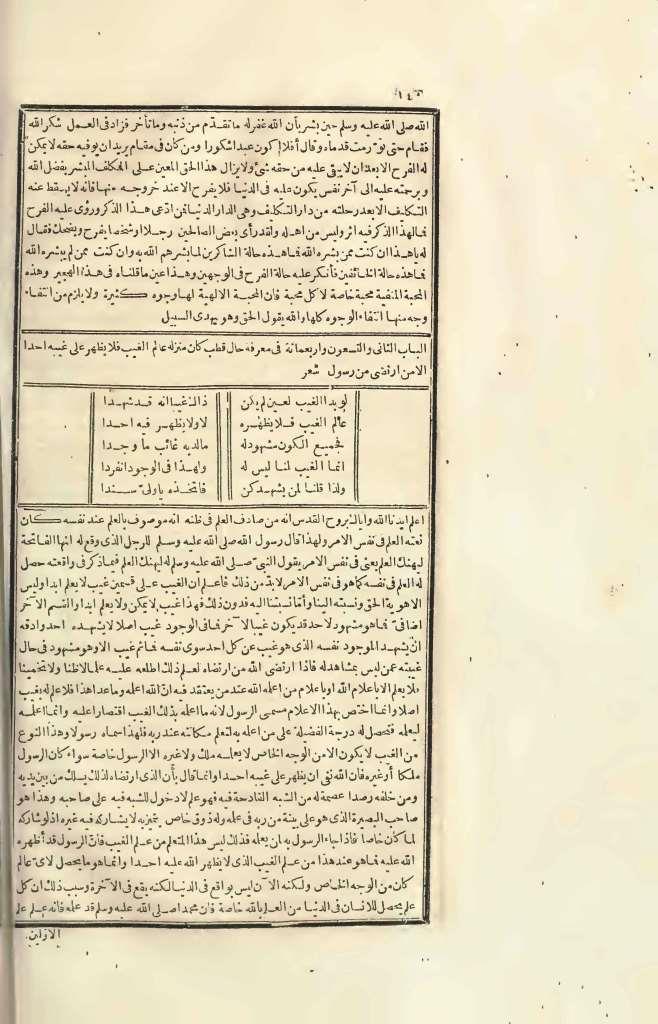 ١٤٣
الله صلى الله عليه وسلم حين بشر بأن الله غفر له ما تقدّم من ذنبه وما تأخر فزاد فى العمل شكر الله
فقام حتى تورّمت قدماه وقال أفلا أكون عبدا شكورا ومن كان فى مقام يريد ان يوفيه حقه لا يمكن
له الفرح الا بعد أن لا يبقى عليه من حقه شئ ولا يزال هذا الحق المعين على المكلف المبشر بفضل الله
وبرحمته عليه الى آخر نفس يكون عليه فى الدنيا فلا يفرح الا عند خروجه منها فانه لا يسقط عنه
التكليف الا بعد رحلته من دار التكليف وهى الدار الدنيا فمن ادّعى هذا الذكر ورؤى عليه الفرح
فما لهذا الذكر فيه اثر وليس من اهله ولقد رأى بعض الصالحين رجلا وشخصا يفرح ويضحك فقال
له يا هذا ان كنت ممن بشره الله فما هذه حالة الشاكرين لما بشرهم الله به وان كنت ممن لم يبشره الله
فما هذه حالة الخائفين فأنكر عليه حالة الفرح فى الوجهين وهذا عين ما قلناه فى هذا الهجير وهذه
المحبة المنفية محبة خاصة لا كل محبة فان المحبة الالهية لها وجوه كثيرة ولا يلزم من انتفاء
وجه منها انتفاء الوجوه كلها والله يقول الحق وهو يهدى السبيل
الباب الثانى والتسعون واربعمائة فى معرفة حال قطب كان منزله عالم الغيب فلا يظهر على غيبه احدا
الا من ارتضى من رسول شعر
لو بدا الغيب لعين لم يكن ذالك غيبا انه قد شهدا
عالم الغيب فلا يظهره لا ولا يظهر فيه احدا
فجميع الكون مشهود له ماله به غائب ما وجدا
انما الغيب لنا ليس له ولهذا فى الوجود انفردا
ولذا قلنا لمن يشهدكن فاتخذه يا ولىّ سندا
اعلم ايدنا الله واياك بروح القدس انه من صادف العلم فى ظنه انه موصوف بالعلم عند نفسه كان
نعته العلم فى نفس الامر ولهذا قال رسول الله صلى الله عليه وسلم للرجل الذى وقع له انها الفاتحة
ليهنك العلم يعنى فى نفس الامر بقول النبىّ صلى الله عليه وسلم له ليهنك العلم فيما ذكر فى واقعته حصل
له العلم فى نفسه كما هو فى نفس الامر لا بدّ من ذلك فاعلم ان الغيب على قسمين غيب لا يعلم ابدا وليس
الا هوية الحق ونسبته الينا وأمّا نسبتنا اليه فدون ذلك فهذا غيب لا يمكن ولا يعلم ابدا والقسم الآخر
اضافىّ فما هو مشهود لاحد قد يكون غيبا لآخر فما فى الوجود غيب اصلا لا يشهده احد وادقه
ان يشهد الموجود نفسه الذى هو غيب عن كل احد سوى نفسه فما ثم غيب الا وهو مشهود فى حال
غيبته عمن ليس بمشاهد له فاذا ارتضى الله من ارتضاه لعلم ذلك اطلعه عليه علما لا ظنا ولا تخمينا
فلا يعلم الا باعلام الله او باعلام من اعلمه الله عند من يعتقد فيه انّ الله اعلمه وما عدا هذا فلا علم له بغيب
اصلا وانما اختص بهذا الاعلام مسمى الرسول لانه ما اعلمه بذلك الغيب اقتصارا عليه وانما اعلمه
ليعلمه فتحصل له درجة الفضيلة على من اعلمه به لتعلم مكانته عند ربه فلهذا سماه رسولا وهذا النوع
من الغيب لا يكون الا من الوجه الخاص لا يعلمه ملك ولا غيره الا الرسول خاصة سواء كان الرسول
ملكا أو غيره فان الله نفى ان يظهر على غيبه احدا وانما قال بأن الذى ارتضاه لذلك يسلك من بين يديه
ومن خلفه رصدا عصمة له من الشبه القادحة فيه فهو علم لا دخول للشبه فيه على صاحبه وهذا هو
صاحب البصيرة الذى هو على بينة من ربه فى علمه وله ذوق خاص يتميز به لا يشاركه فيه غيره اذ لو شاركه
لما كان خاصا فاذا جاء الرسول به ان يعلمه فذلك ليس هذا المتعلم من علم الغيب فانّ الرسول قد أظهره
الله عليه فما هو عند هذا من علم الغيب الذى لا يظهر الله عليه احدا وانما هو ما يحصل لاىّ عالم
كان من الوجه الخاص ولكنه الآن ليس بواقع فى الدنيا لكنه يقع فى الآخرة وسبب ذلك ان كل
علم يحصل للانسان فى الدنيا من العلم بالله خاصة فان محمدا صلى الله عليه وسلم قد علمه فانه علم علم
الاوّلين.